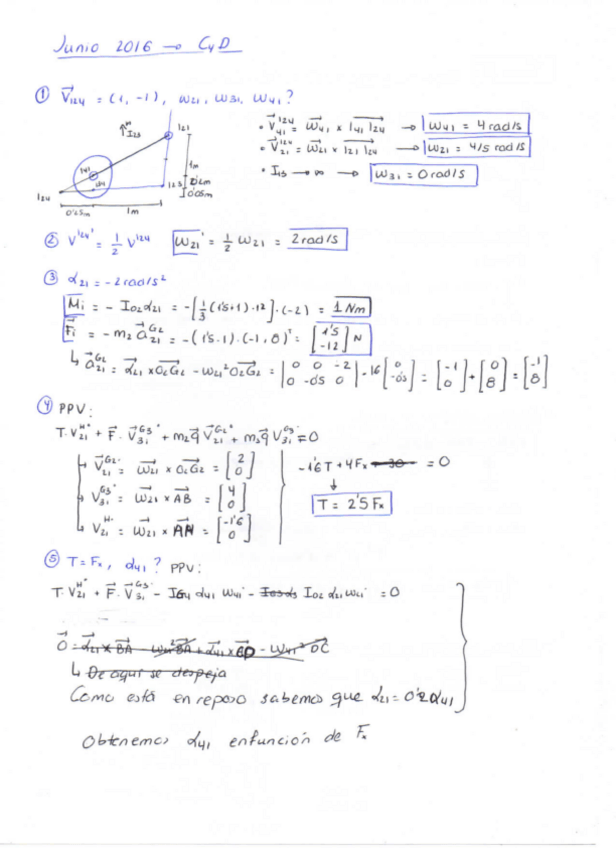 Junio 2016 → CyD
① V⃗I24 = (1, -1), ω21, ω31, ω41?
I13
I21
• V⃗41^I24 = ω⃗41 x I41 I24 → ω41 = 4 rad/s
• V⃗21^I24 = ω⃗21 x I21 I24 → ω21 = 4/5 rad/s
• I13 → ∞ → ω31 = 0 rad/s
1m
0'2m
0'05m
I24
0'25m
1m
② V^I24' = 1/2 V^I24 ω21' = 1/2 ω21 = 2 rad/s
③ α21 = -2 rad/s²
Mi = - IO2 α21 = -[1/3 (1'5+1)·12]·(-2) = 1 Nm
F⃗i = - m2 a⃗21^G2 = -(1'5·1)·(-1, 8) = [1'5 -12] N
↳ a⃗21^G2 = α⃗21 x O2G2 - ω21² O2G2 = |0 0 -2 0 -0'5 0| - 16 [0 -0'5] = [-1 0] + [0 8] = [-1 8]
④ PPV:
T·V21^H + F⃗·V⃗31^G3 + m2 g⃗ V⃗21^G2 + m3 g⃗ V⃗31^G3 = 0
V⃗21^G2 = ω⃗21 x O2G2 = [2 0]
V31^G3 = ω⃗21 x AB = [4 0]
V21^H = ω⃗21 x AH = [-1'6 0]
-1'6T + 4Fx = 0
↓
T = 2'5 Fx
⑤ T = Fx, α41? PPV:
T·V21^H + F⃗·V⃗31^G3 - IG4 α41 ω41 - IO2 α21 ω21 = 0
↳ De aquí se despeja
Como está en reposo sabemos que α21 = 0'2α41
Obtenemos α41 en función de Fx